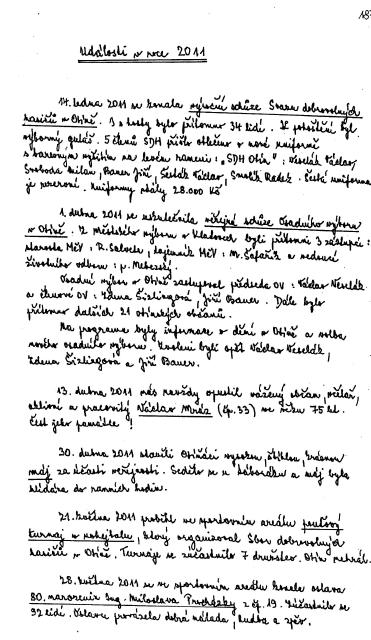 187
Události v roce 2011
14. ledna 2011 se konala výroční schůze Svazu dobrovolných
hasičů v Otíně. I s hosty bylo přítomno 34 lidí. K pohoštění byl
výborný guláš. 5 členů SDH přišlo oblečeno v nové uniformě
s barevným vyšitím na levém rameni: "SDH Otín": Veselák Václav,
Svoboda Milan, Bauer Jiří, Šesták Václav, Smolík Radek. Šestá uniforma
je rezervní. Uniformy stály 28.000 Kč
1. dubna 2011 se uskutečnila veřejná schůze Osadního výboru
v Otíně. Z Městského výboru v Klatovech byli přítomni 3 zástupci:
starosta MěV: R. Salvetr, tajemník MěV: M. Šafařík a vedoucí
životního odboru: p.
Osadní výbor v Otíně zastupoval předseda OV: Václav Veselák
a členové OV: Zdena Šizlingová, Jiří Bauer. Dále bylo
přítomno dalších 21 otínských občanů.
Na programu byly informace o dění v Otíně a volba
nového osadního výboru. Zvoleni byli opět Václav Veselák,
Zdena Šizlingová a Jiří Bauer.
13. dubna 2011 nás navždy opustil vážený občan, včelař,
aktivní a pracovitý Václav Mráz (čp. 33) ve věku 75 let.
Čest jeho památce!
30. dubna 2011 stavěli Otíňáci vysokou, štíhlou, krásnou
máj za účasti veřejnosti. Sedělo se u táboráku a máj byla
hlídána do ranních hodin.
21. května 2011 proběhl ve sportovním areálu pouťový
turnaj v nohejbalu, který organizoval Sbor dobrovolných
hasičů v Otíně. Turnaje se zúčastnilo 7 družstev. Otín nehrál.
28. května 2011 se ve sportovním areálu konala oslava
80. narozenin Ing. Miloslava Procházky z čp. 19. Zúčastnilo se
92 lidí. Oslavu provázela dobrá nálada, hudba a zpěv.